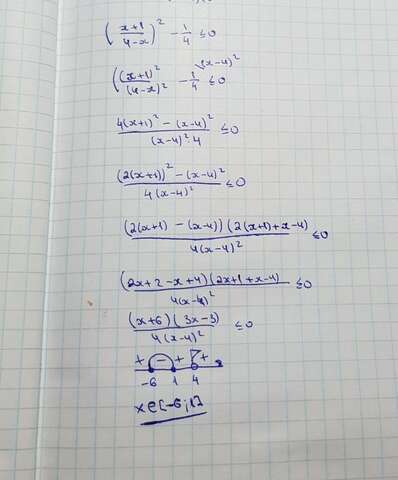 ((x+1)/(4-x))² - 1/4 ≤0
((x+1)²/(4-x)² - 1/4 ≤0 \(x-4)²
(4(x+1)² - (x-4)²)/((x-4)²·4) ≤0
((2(x+1))² - (x-4)²)/(4(x-4)²) ≤0
((2(x+1) - (x-4))(2(x+1)+x-4))/(4(x-4)²) ≤0
((2x+2-x+4)(2x+1+x-4))/(4(x-4)²) ≤0
((x+6)(3x-3))/(4(x-4)²) ≤0
+ - + +
-6 1 4
x∈[-6;1]